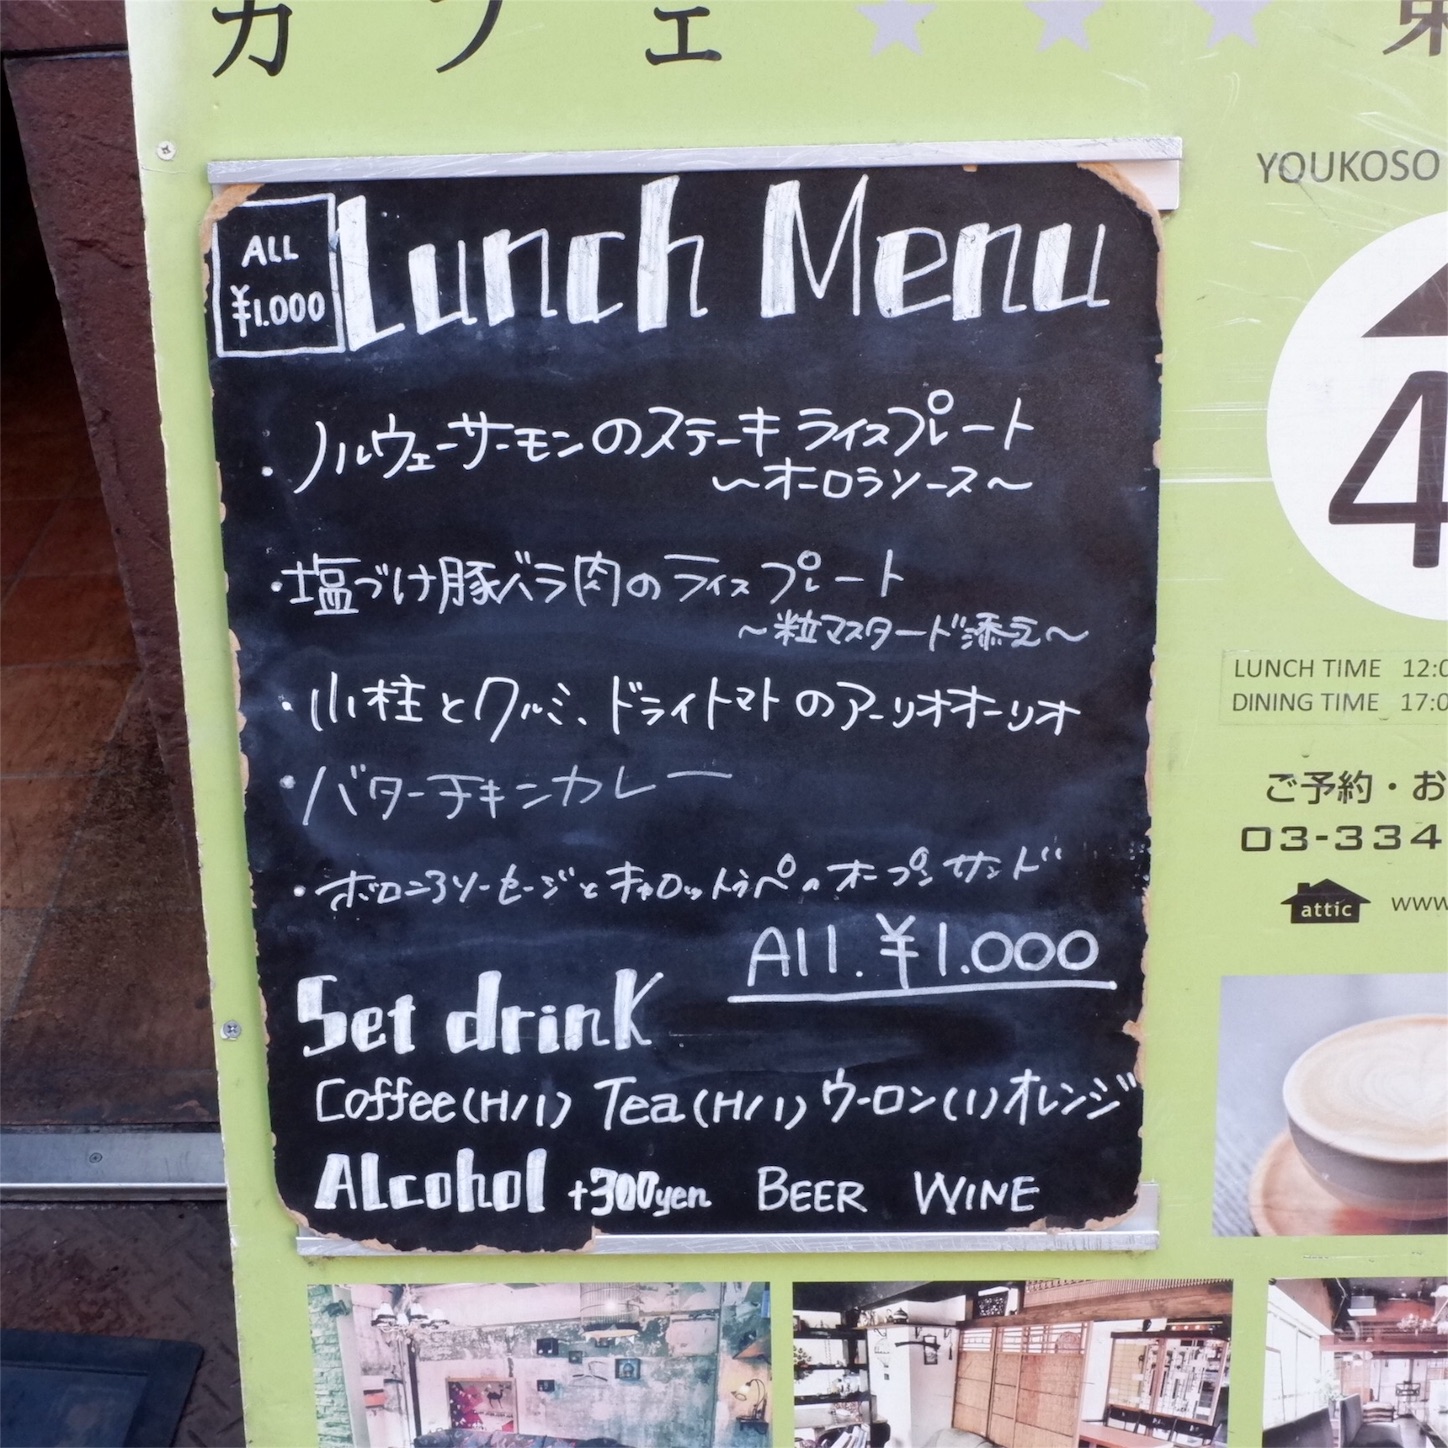 カフェ ★★★
YOUKOSO
ALL
¥1.000
Lunch Menu
・ノルウェーサーモンのステーキ ライスプレート
～オーロラソース～
・塩づけ豚バラ肉のライスプレート
～粒マスタード添え～
・小柱とクルミ、ドライトマトのアーリオオーリオ
・バターチキンカレー
・ボロニアソーセージとキャロットラペのオープンサンド
All. ¥1.000
Set drink
Coffee(H/I) Tea(H/I) ウーロン(I)オレンジ
ALcohol +300yen BEER WINE
4
LUNCH TIME 12:0
DINING TIME 17:0
ご予約・お
03-334
attic www